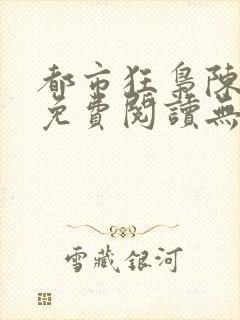 都市狂梟陳
免費閱讀無
雪藏銀河